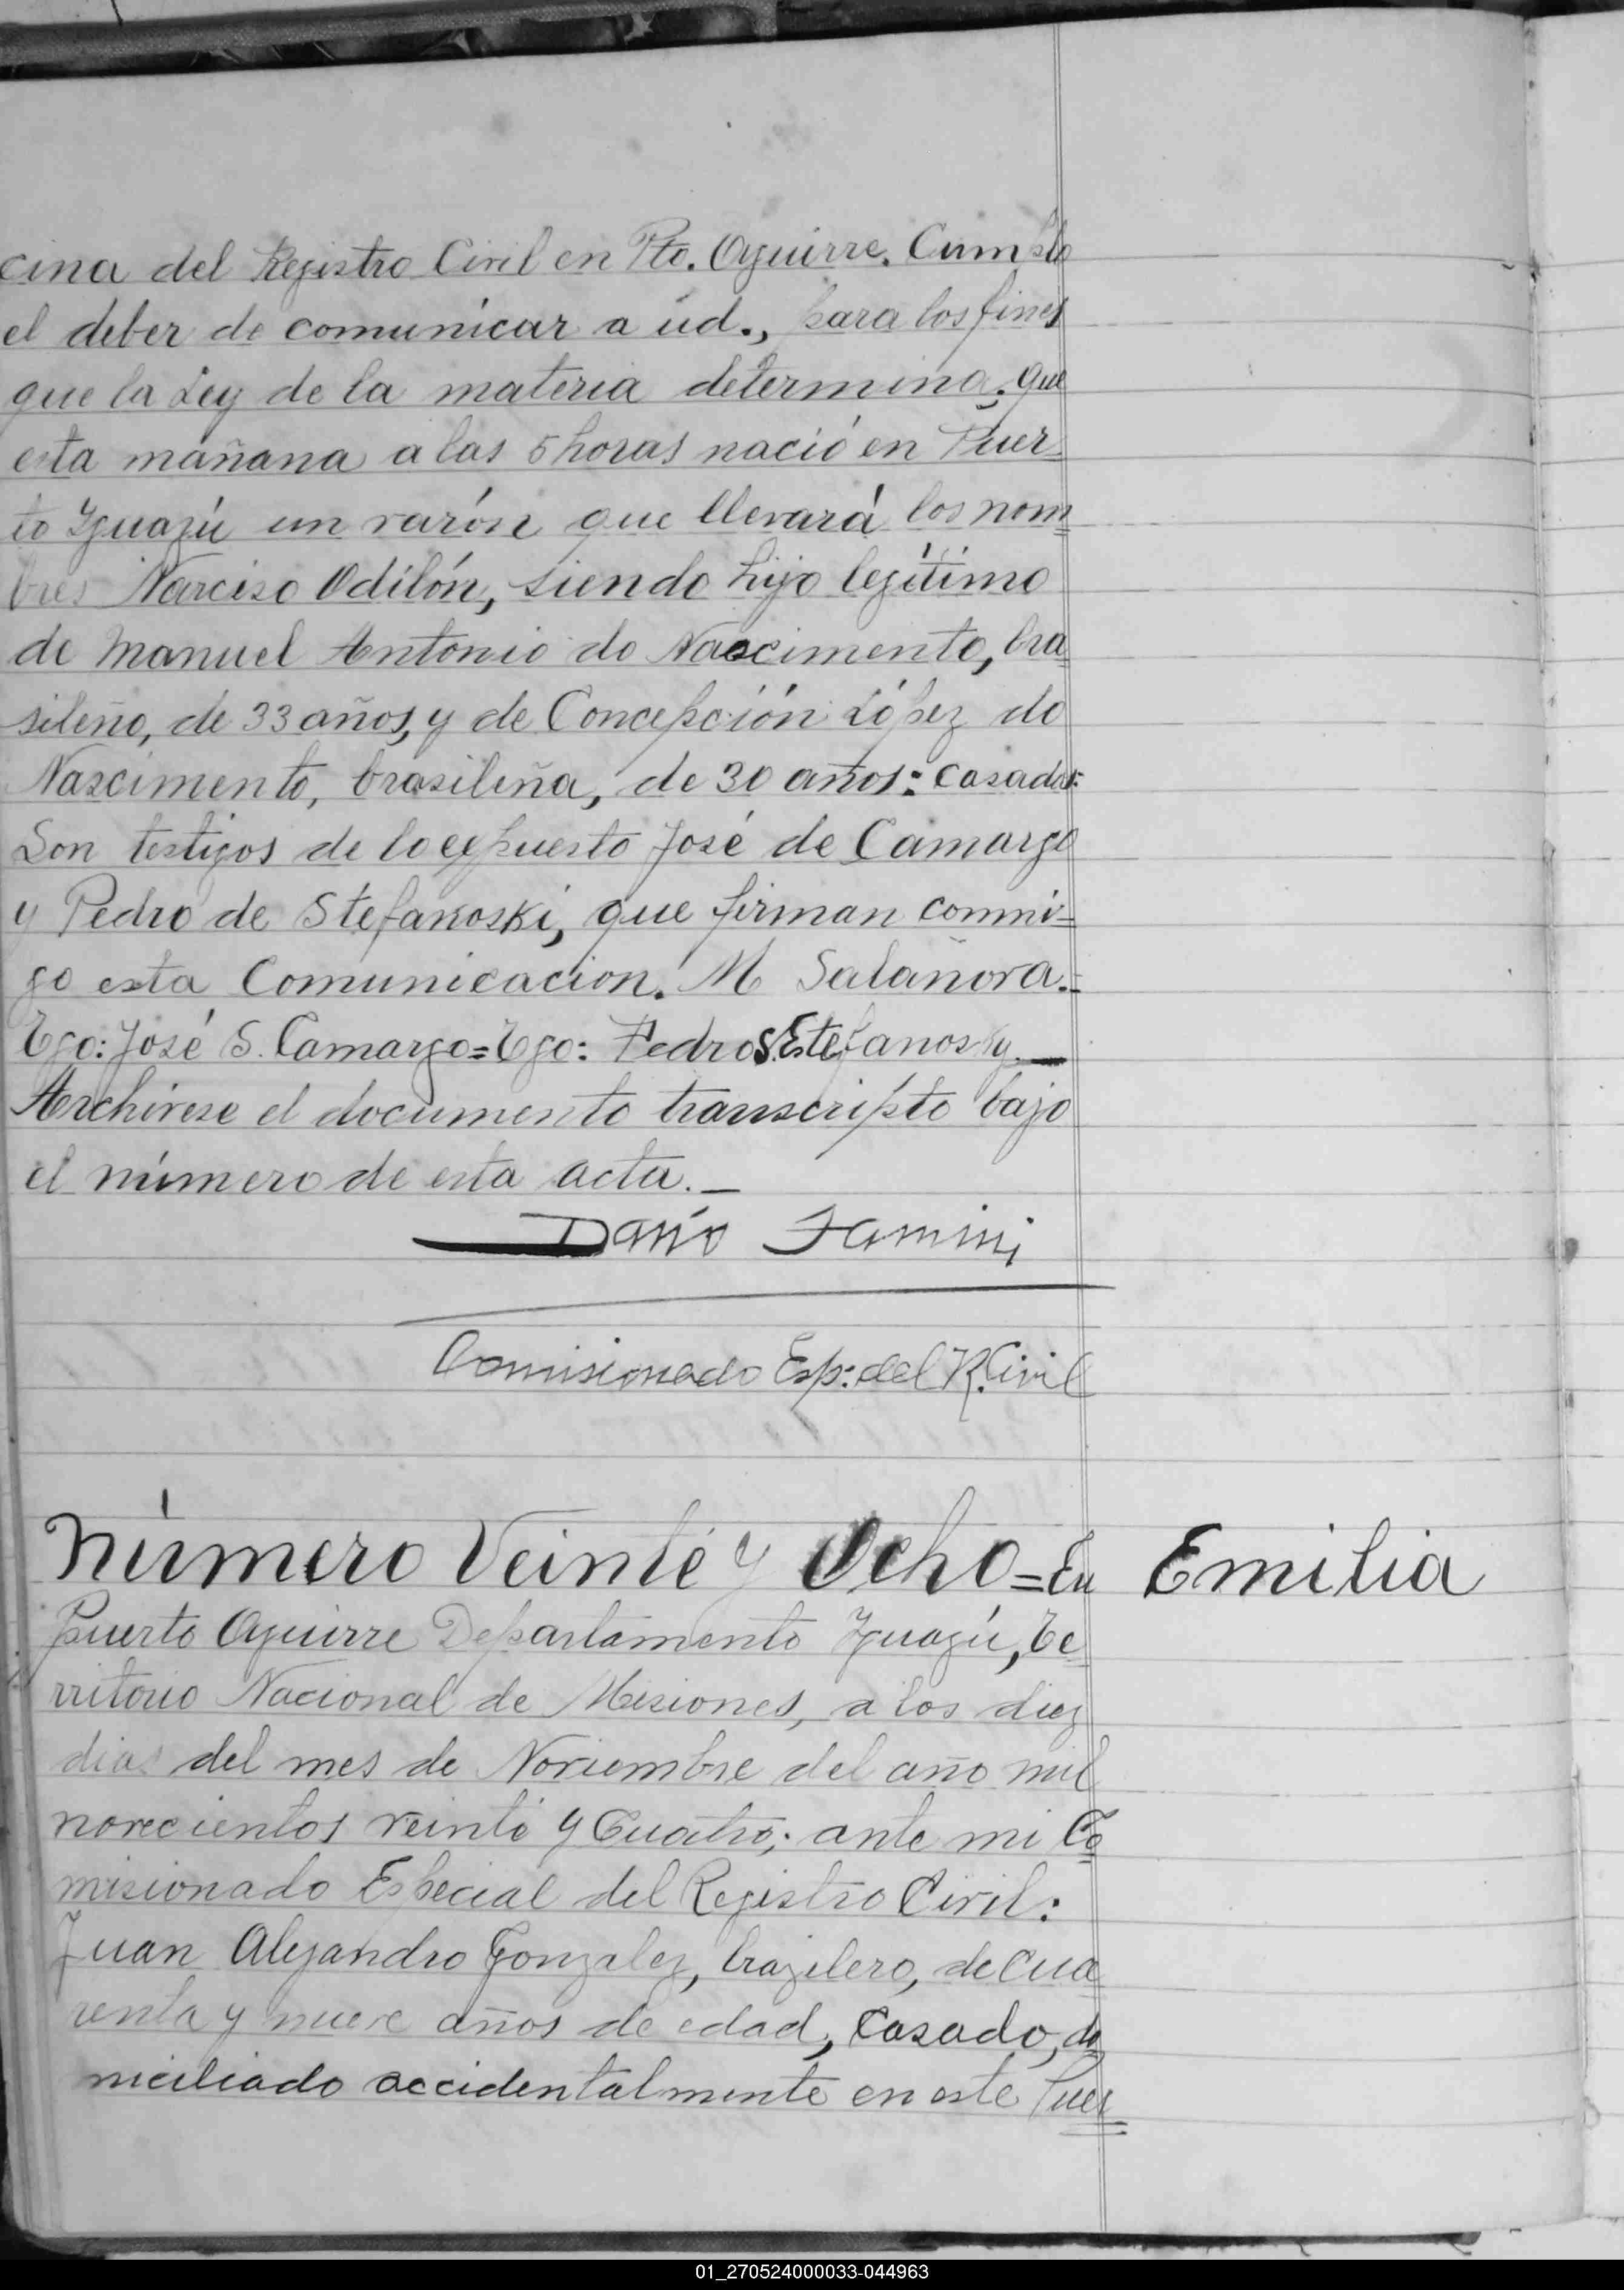 cina del Registro Civil en Pto. Aguirre. Cumplo
el deber de comunicar a úd., para los fines
que la Ley de la materia determina, que
esta mañana a las 5 horas nació en Puer-
to Iguazú un varón que llevará los nom
bres Narciso Odilón, siendo hijo legítimo
de Manuel Antonio do Nascimento, bra
sileño, de 33 años, y de Concepción López do
Nascimento, brasileña, de 30 años: casados:
Son testigos de lo expuesto José de Camargo
y Pedro de Stefanoski, que firman conmi=
go esta Comunicacion. M Salañova.=
Tgo: José S. Camargo = Tgo: Pedro S. Estefanosky.—
Archivese el documento transcripto bajo
el número de esta acta.—
Darío
Comisionado Esp: del R. Civil
Número Veinte y Ocho = En
Emilia
Puerto Aguirre Departamento Iguazú, Te
rritorio Nacional de Misiones, a los diez
dias del mes de Noviembre del año mil
novecientos veinte y Cuatro; ante mi Co
misionado Especial del Registro Civil:
Juan Alejandro Gonzalez, brazilero, de cua
renta y nueve años de edad, Casado, do
miciliado accidentalmente en este Puer
01_270524000033-044963